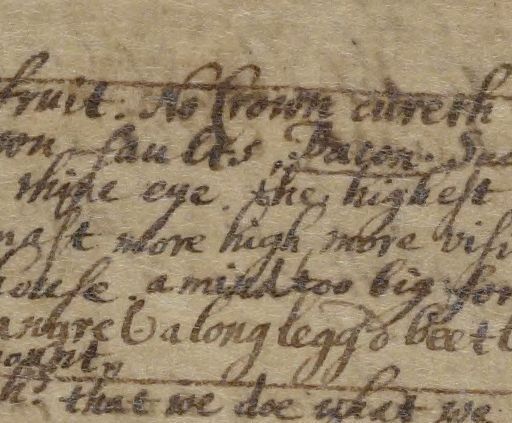 fruit. No Crown cureth
faults. Bacon.
mine eye. the highest
mast more high, more visi
house. a mind too big for
a long legg'd beetl
ount.
that we doe what we